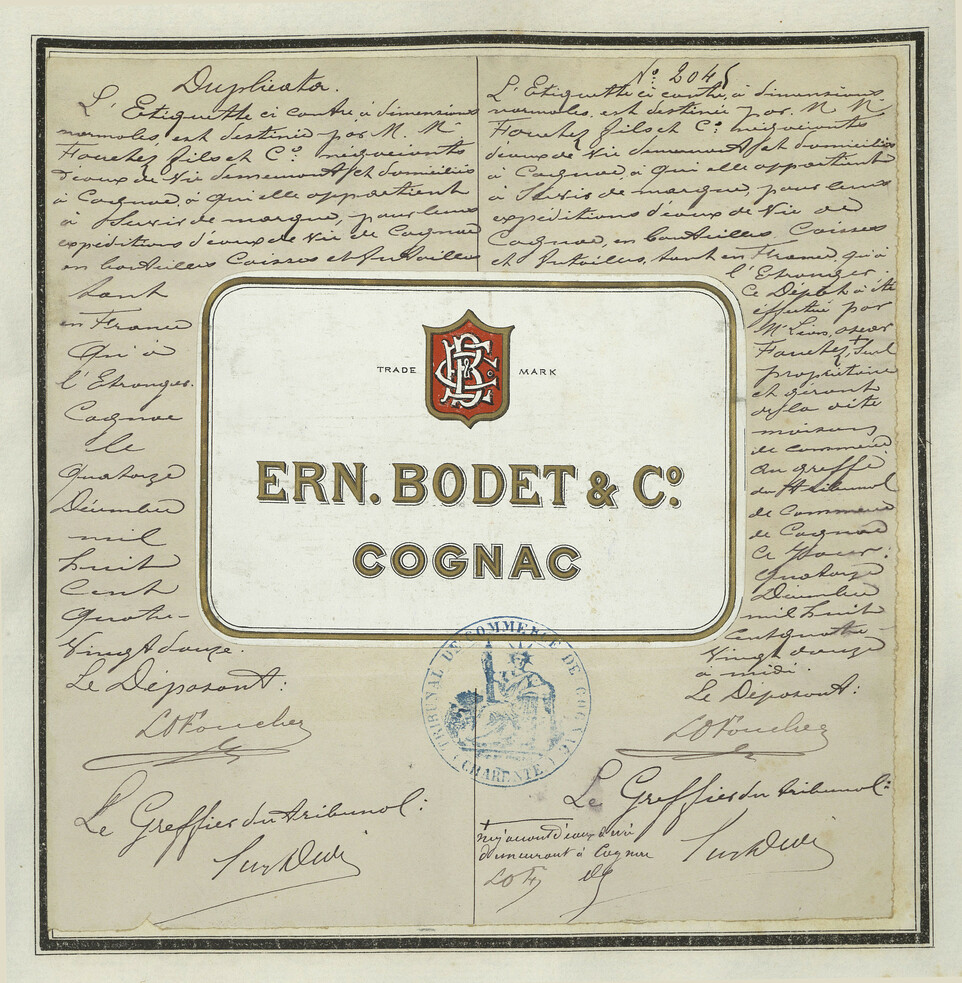 Duplicata.
L'Etiquette ci contre à dimensions
normales, est destinée par M. M.
Foucher fils et Cº négociants
d'eaux de Vie demeurant et domiciliés
à Cognac, à qui elle appartient
à Servir de marque, pour leurs
expéditions d'eaux de Vie de Cognac
en bouteilles Caisses et futailles
tant
en France
qu'à
l'Etranger.
Cognac
le
quatorze
Décembre
mil
huit
Cent
quatre-
Vingt douze.
Le Déposant:
LOFoucher
Le Greffier du tribunal:
Nº 2045
L'Etiquette ci contre, à dimensions
normales, est destinée par M. M.
Foucher fils et Cº négociants
d'eaux de Vie demeurant et domiciliés
à Cognac, à qui elle appartient
à Servir de marque, pour leurs
expéditions d'eaux de Vie de
Cognac, en bouteilles, Caisses
et futailles, tant en France, qu'à
l'Etranger.
Ce Dépôt a été
effectué par
Mr Léon, oscar
Foucher, + seul
propriétaire
et gérant
de la dite
maison
de commerce
au greffe
du tribunal
de Commerce
de Cognac
Ce Jour:
quatorze
Décembre
mil huit
cent quatre-
vingt douze
à midi
Le Déposant:
LOFoucher
Le Greffier du tribunal:
+ négociant d'eaux de vie
demeurant à Cognac
LOF
TRADE MARK
EBCº
ERN. BODET & Cº.
COGNAC
TRIBUNAL DE COMMERCE DE COGNAC
(CHARENTE)